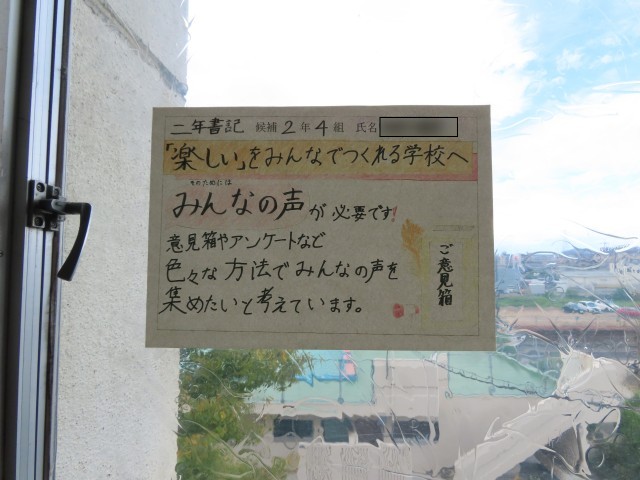 二年書記 候補 2年4組 氏名
「楽しい」をみんなでつくれる学校へ
そのためには
みんなの声が必要です!
意見箱やアンケートなど
色々な方法でみんなの声を
集めたいと考えています。
ご意見箱